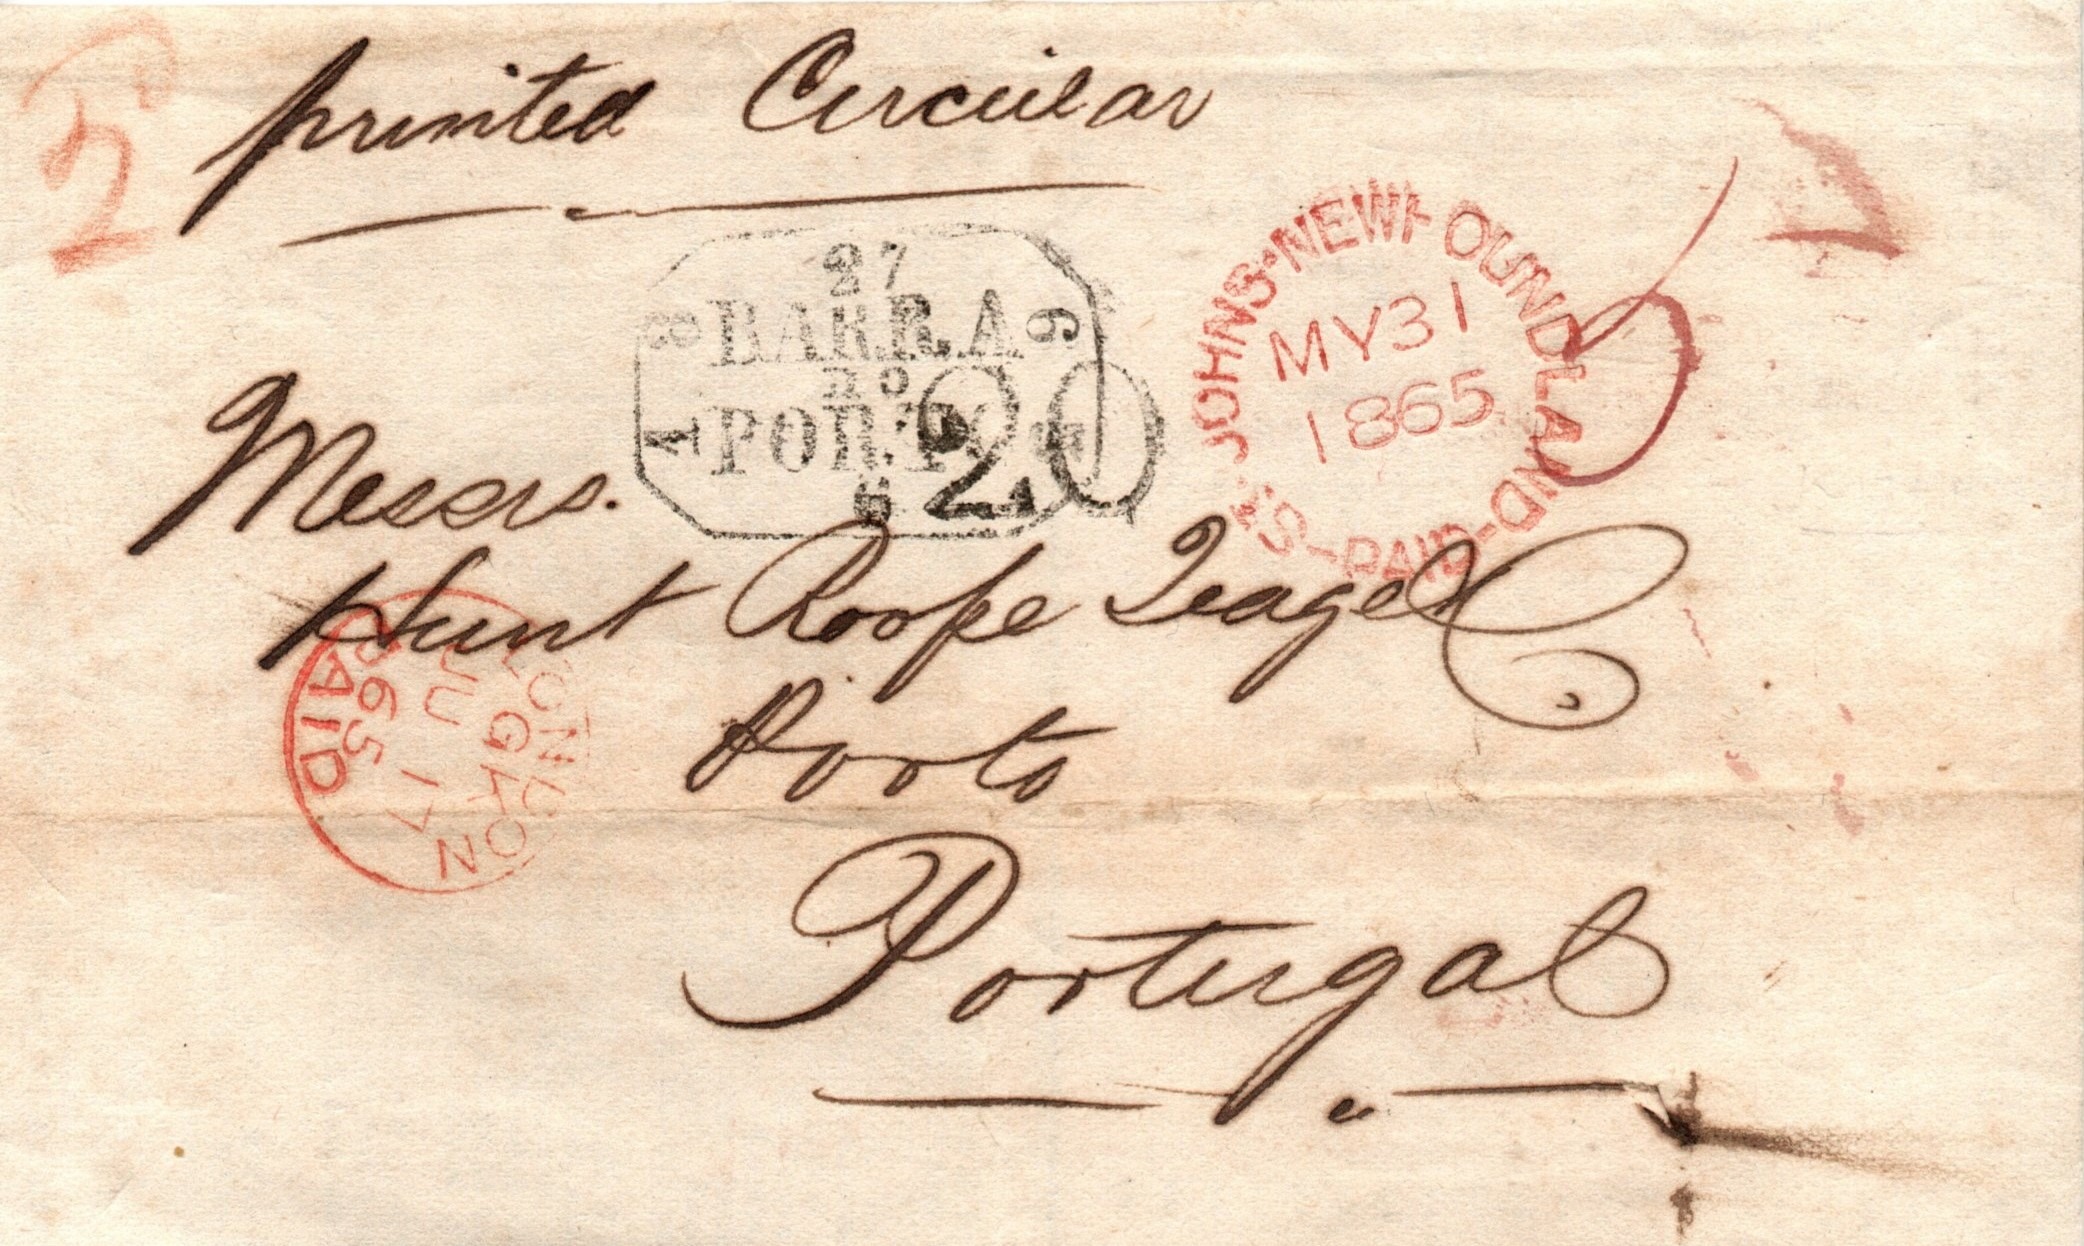 2
printed Circular
27
BARRA
DO
PORTO
8 6
20
ST. JOHNS·NEWFOUNDLAND
MY31
1865
PAID
3
Messrs.
Hunt Roope Teage &Co
Porto
Portugal
LONDON
G
JU 17
65
PAID